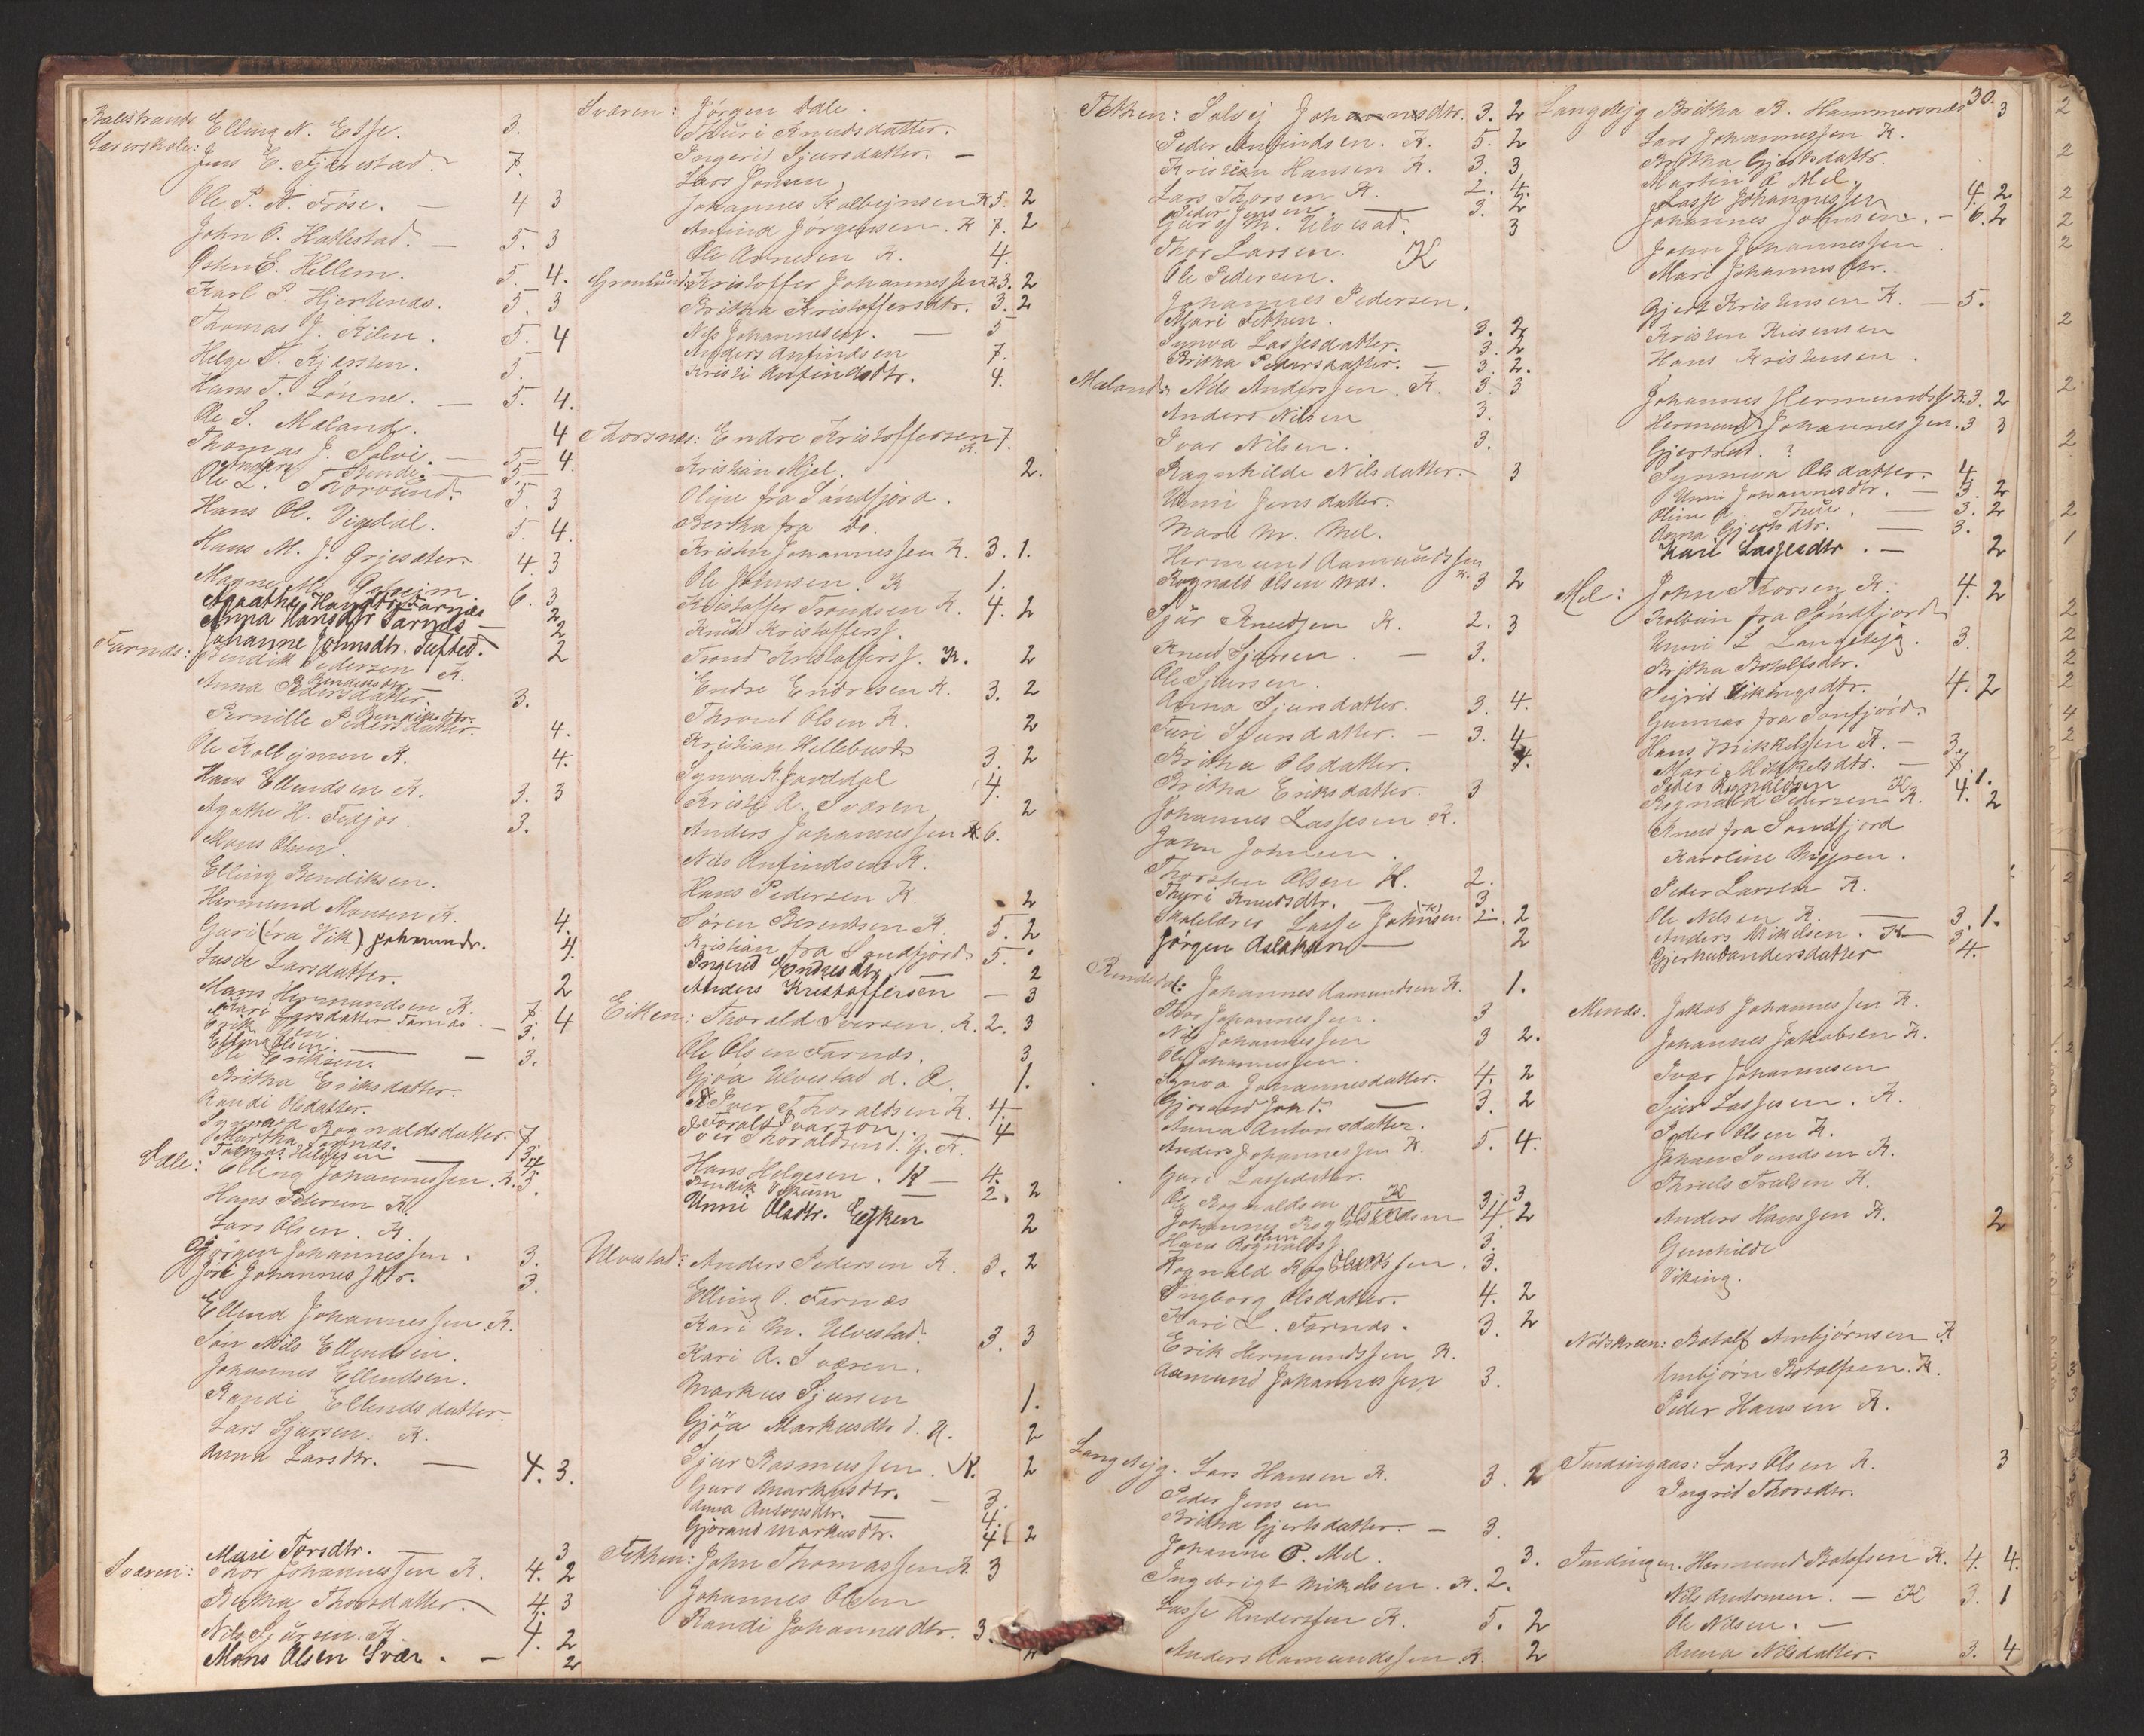 Balestrands Elling N. Esse. 3.
Lærerskole:
Jens E. Fjærestad. 7.
Ole P. N. Fröse. — 4 3
John O. Hatlestad. — 5. 3
E. Hellem. 5. 4.
Karl P. Hjertenæs. 5. 3
Thomas J. Kilen. 5. 4
Helge T. Kjersten. 5.
Hans T. Lönne. — 5. 4.
Ole S. Mæland. 4
Thomas J. Solvi. — 5 4.
Ole L. Thorvund. 5. 3
Hans Ol. Vigdal. 5. 4.
Hans M. J. Grjesæter. 4 3
6. 3
Agathe Hansdtr. Farnæs 2
Anna Hansdtr Farnæs — 2
Johanne Johnsdtr. Tufted. 2
Farnæs: Bendik Pedersen K.
Anna Pedersdatter. 3.
Pernille Pedersdatter. 4.
Ole Kolbejnsen K. 4.
Hans Ellendsen K. 3. 3
Agathe H. Fedjos. 3.
Mons Olsen.
Elling Bendiksen.
Hermund Monsen K. 4.
Guri (fra Vik). Johannsdr. 4.
Lasse Larsdatter. 2
Mons Hermundsen K. 7 4
Kari Larsdatter Farnæs. — 3.
Erik Olsen.
Elling Olsen. —
Ole Eriksen. — 3.
Britha Eriksdatter.
Randi Olsdatter.
Synneva Rognaldsdatter. 7
Martha Farnæs. 3.
Thomas Helgesen — 4
Dale: Elling Johannessen. K. 3.
Hans Petersen K.
Lars Olsen. K.
Jörgen Johannessen. 3.
Johannesdtr. 3.
Ellend Johannessen. K.
Søn Nils Ellendsen.
Johannes Ellendsen.
Randi Ellendsdatter.
Lars Sjursen. K.
Anna Larsdtr. — 4. 3.
Mari Torsdtr. — 3
Sværen: Thor Johannessen K. 4. 2
Britha Thorsdatter. 4. 3
Nils Sjursen. K. 4. 2
Mons Olsen Svær. — 2
Sværen: Jörgen Dale.
Thuri Knudsdatter.
Ingerid Sjursdatter. —
Lars Jonsen.
Johannes Kolbejnsen K 5. 2
Anfind Jörgensen. K 7. 2
Ole Arnesen K. 4.
Grønlund: Kristoffer Johannessen K 3. 2
Britha Kristoffersdtr. 3. 2
Nils Johannesen. — 5
Anders Anfindsen 7.
Kristi Anfindsdtr. 4.
Thorsnes: Endre Kristoffersen K. 7.
Kristian Mjel. 2.
Oline fra Söndfjord.
Bertha fra do.
Kristen Johannessen K. 3. 1.
Ole Johnsen. K 1.
Kristoffer Trondsen K. 4. 2
Knud Kristofferss.
Trond Kristofferss. K. 2
Endre Endresen K. 3. 2
Thrond Olsen K. 2
Kristian Hellebust 3. 2
Synva K. 4.
Kristi A. Sværen 2
Anders Johannessen K 6.
Nils Anfindsen K.
Hans Pedersen K. 2
Søren Berentsen K. 5. 2
Kristian fra Sundfjord 5.
Ingerid Endresdtr. 2
Anders Kristoffersen — 3
Eiken: Thorald Iversen. K. 2. 3
Ole Olsen Farnæs. 3
Gjöa Ulvestad d. Æ. 1.
Iver Thoraldsen K. 4.
Torald Ivarson. 4
Iver Thoraldsen d. Y. K.
Hans Helgesen. K — 4.
Bendik — 2. 2
Unni Olsdtr. Ejken 2
Ulvestad: Anders Pedersen K. 3. 2
Elling O. Farnæs
Kari M. Ulvestad. 3. 3
Kari A. Sværen.
Markus Sjursen 1.
Gjöa Markusdtr d. Y. 2
Sjur Rasmussen. K. 2
Guro Markusdtr. — 3.
Anna Antonsdtr. — 4.
Gjörand Markusdtr. 4. 2
Tekken: John Thomassen K. 3
Johannes Olsen
Randi Johannesdtr. 3.
Tekken: Solvej Johannsdtr. 3. 2
Peder Anfindsen. K. 5. 2
Kristian Hansen K. 3. 3
Lars Thorsen K. 2. 4.
Peder Jensen 3. 2
Guro M. Ulvestad. 3
Thor Larsen. K
Ole Pedersen.
Johannes Pedersen.
Mari Tekken. 3. 2
Synva Lassesdatter. 3. 2
Britha Pedersdatter. — 3. 2.
Mæland: Nils Anderssen. K. 3. 3
Anders Nilsen 3.
Ivar Nilsen. 3.
Ragnhilde Nilsdatter. 3
Unni Jensdatter.
Mari M. Mel.
Hermund Aamundssen
Rognald Olsen K. 3 2
Sjur Knudsen K. 2. 3
Knud Sjursen. — 3.
Ole Sjursen.
Anna Sjursdatter. 3. 4.
Turi Sjursdatter. — 3. 4
Britha Olsdatter. 4.
Britha Eriksdatter. 3
Johannes Lassesen K.
John Johnsen.
Thorsten Olsen K. 2.
Thyri Knudsdtr. — 3.
Lasse Johnsen 2. 2
Jörgen Aslaksen — 2
Rendedal: Johannes Aamundsen K. 1.
Thor Johannessen. 3
Nils Johannessen 3 2.
Ole Johannessen.
Synva Johannesdatter. 4. 2
Gjörand Joh d. — 3. 2
Anna Antonsdatter.
Anders Johannessen K. 5. 4.
Guri Lassedatter.
Ole Rognaldsen K 3. 3
Johannes Olsen 4. 2
Hans Rognaldss. Olsen 3.
Rognald Olsen. 3.
Ingborg Olsdatter. 4. 2
Kari L. Farnæs. 3. 2
Erik Hermundssen K.
Aamund Johannessen 3.
Langelejg. Lars Hansen K. 3. 2
Peder Jensen
Britha Gjertsdatter. — 3.
Johanne P. Mel. 3.
Ingebrigt Mikelsen. K. 2.
Lasse Anderssen K. 5. 2
Anders Aamundssen. K. 2
30.
Langelejg Britha B. Hammersnæs 3
Lars Johannessen K.
Britha Gjertsdattr.
Martin A Mel.
Lasse Johannessen 4. 2
Johannes Johnsen. — 6. 2
John Johannessen.
Mari Johannesdtr.
Gjert Kristensen K. — 5.
Kristen Kristensen
Hans Kristensen.
Johannes Hermundss K. 3. 2
Hermund Johannessen. 3 3
Gjertrud. ?
Synneva Olsdatter. 4
Unni Johannesdtr. — 3. 2
Olina A. — 3. 2
Anna Gjertsdtr. — 3.
Kari Lassesdtr. — 2
Mel: John Thorsen K. 4. 2
Kolbein fra Söndfjord
Unni L Langelejg. 3.
Britha Botolfsdtr.
Sigrid Vikingsdtr. 4. 2
Gunnar fra Sönfjord.
Hans Mikkelssen K. — 3.
Mari Mikkelsdtr. — 7
Peder Rognaldsen K 1.
Rognald Pedersen K. 4. 2
Knud fra Sondfjord
Karoline Nigjren.
Peder Larsen K.
Ole Nilsen K. — 3. 1.
Anders Mikelsen. K 3.
Gjertrud andersdatter 4.
Menæs. Jakob Johannessen K.
Johannes Jakobsen K.
Ivar Johannesen
Sjur Lassesen. K.
Peder Olsen K.
Johan Svendsen K.
Thruls Trulsen K.
Anders Hanssen K. 2
Gunhilde
Viking.
Nödskreen: Botolf Ambjörnsen K
Ambjörn Botolfsen. K.
Peder Hansen K.
Tendingaas: Lars Olsen K. 3
Ingrid Thorsdtr.
Tendingen. Hermund Botolfsen K. 4. 4.
Nils Andersen. — K 3. 1
Ole Nilsen. —
Anna Nilsdatter. 3. 4